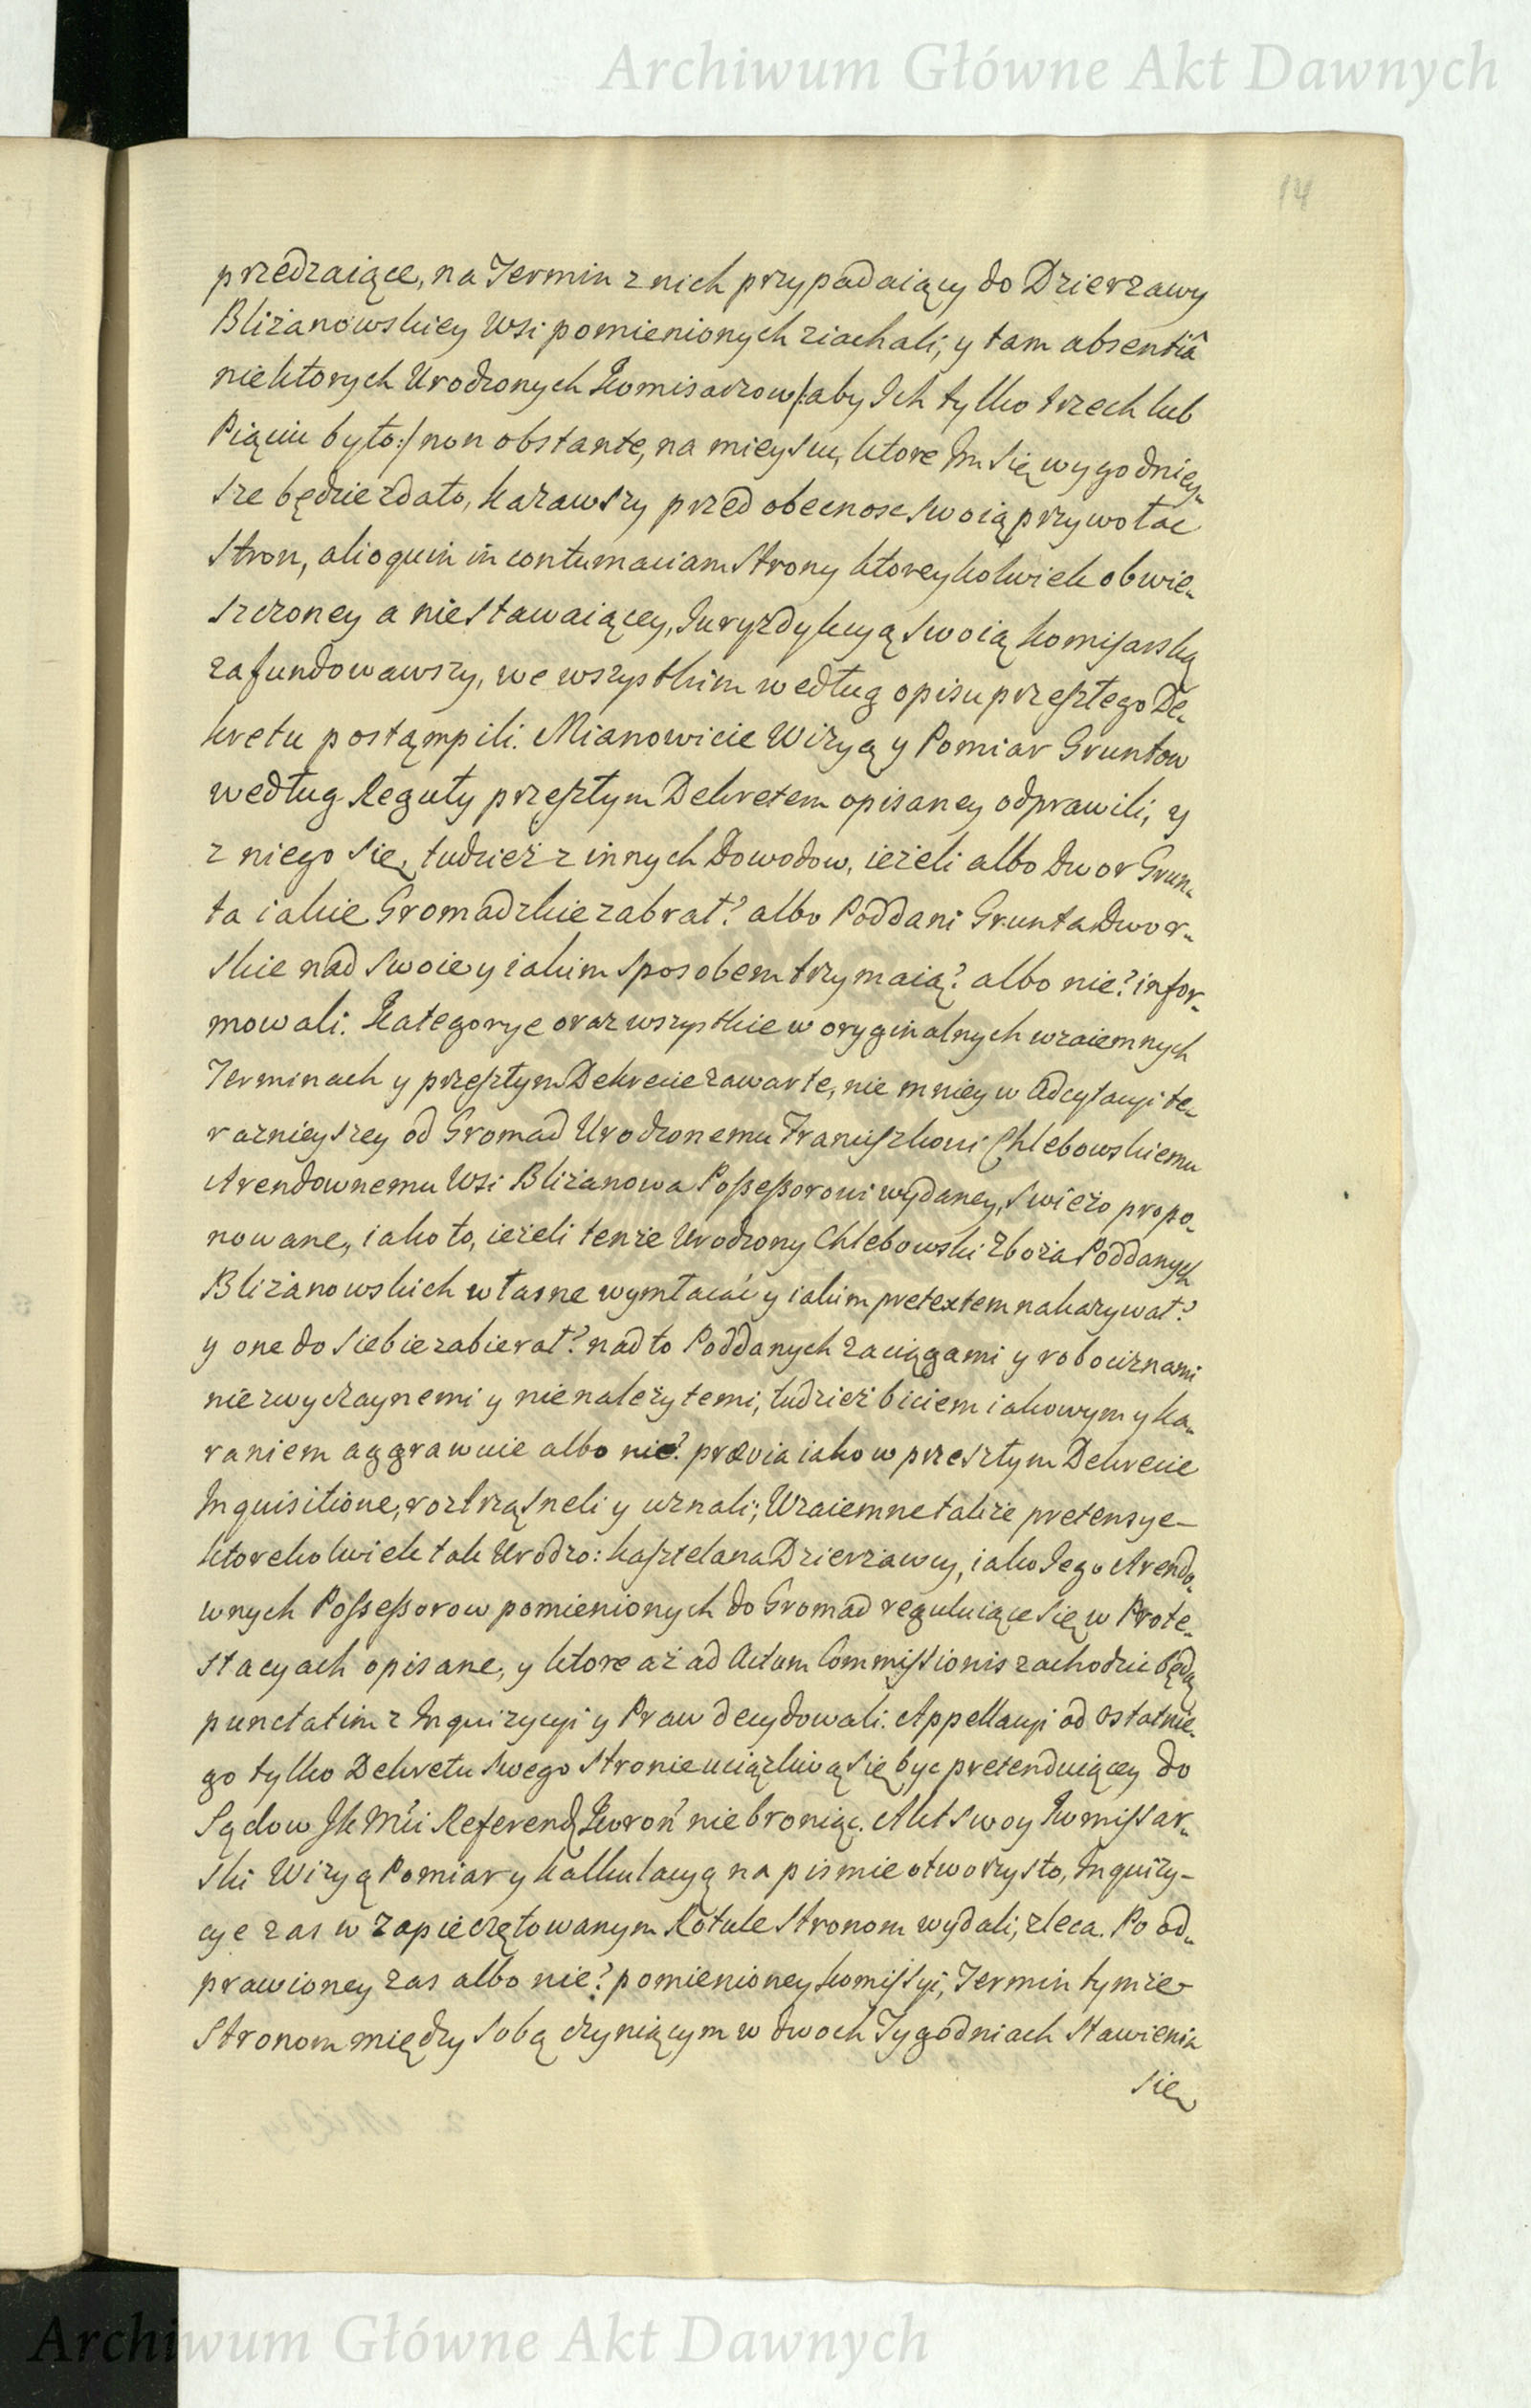 Archiwum Główne Akt Dawnych
14
przedzaiące, na Termin z nich przypadaiący do Dzierzawy
Bliżanowskiey Wsi pomienionych ziachali, y tam absentiâ
niektorych Urodzonych Komisarzow /:aby Ich tylko trzech lub
Piąciu było:/ non obstante, na mieyscu, ktore Im się wygodniey-
sze będzie zdało, kazawszy przed obecnosc swoią przywołac
Stron, alioquin in contumaciam Strony ktoreykolwiek obwie-
szczoney a niestawaiącey, Juryzdykcyą swoią komisarską
zafundowawszy, we wszystkim według opisu przeszłego De-
kretu postąmpili. Mianowicie Wizyą y Pomiar Gruntow
według Reguły przeszłym Dekretem opisaney odprawili, y
z niego się, tudzież z innych Dowodow, ieżeli albo Dwor Grun-
ta iakie Gromadzkie zabrał? albo Poddani Grunta Dwor-
skie nad swoie y iakim sposobem trzymaią? albo nie? infor-
mowali. Kategorye oraz wszystkie w oryginalnych wzaiemnych
Terminach y przeszłym Dekrecie zawarte, nie mniey w Adcytacyi te-
raznieyszey od Gromad Urodzonemu Franciszkowi Chlebowskiemu
Arendownemu Wsi Bliżanowa Possessorowi wydaney, swieżo propo-
nowane, iako to, ieżeli tenże Urodzony Chlebowski Zboża Poddanych
Bliżanowskich własne wymłacać y iakim pretextem nakazywał?
y one do siebie zabierał? nad to Poddanych zaciągami y robociznami
niezwyczaynemi y nienależytemi, tudzież biciem iakowym y ka-
raniem aggrawuie albo nie? prævia iako w przeszłym Dekrecie
Inquisitione, roztrząsneli y uznali; Wzaiemne także pretensye
ktorekolwiek tak Urodzo: kasztelana Dzierżawcy, iako Jego Arendo-
wnych Possessorow pomienionych do Gromad reguluiące się w Prote-
stacyach opisane, y ktore aż ad Actum Commissionis zachodzic będą
punctatim z Inquizycyi y Praw decydowali. Appellacyi od ostatnie-
go tylko Dekretu swego Stronie uciążliwą się byc pretenduiącey do
Sądow JK Mci Referend Koroń nie broniąc. Akt swoy Komissar-
ski Wizyą Pomiar y kalkulacyą na pismie otworzysto, Inquizy-
cye zas w zapieczętowanym Rotule Stronom wydali, zleca. Po od-
prawioney zas albo nie? pomienioney komissyi, Termin tymże
Stronom między sobą czyniącym w dwoch Tygodniach stawienia
się
Archiwum Główne Akt Dawnych